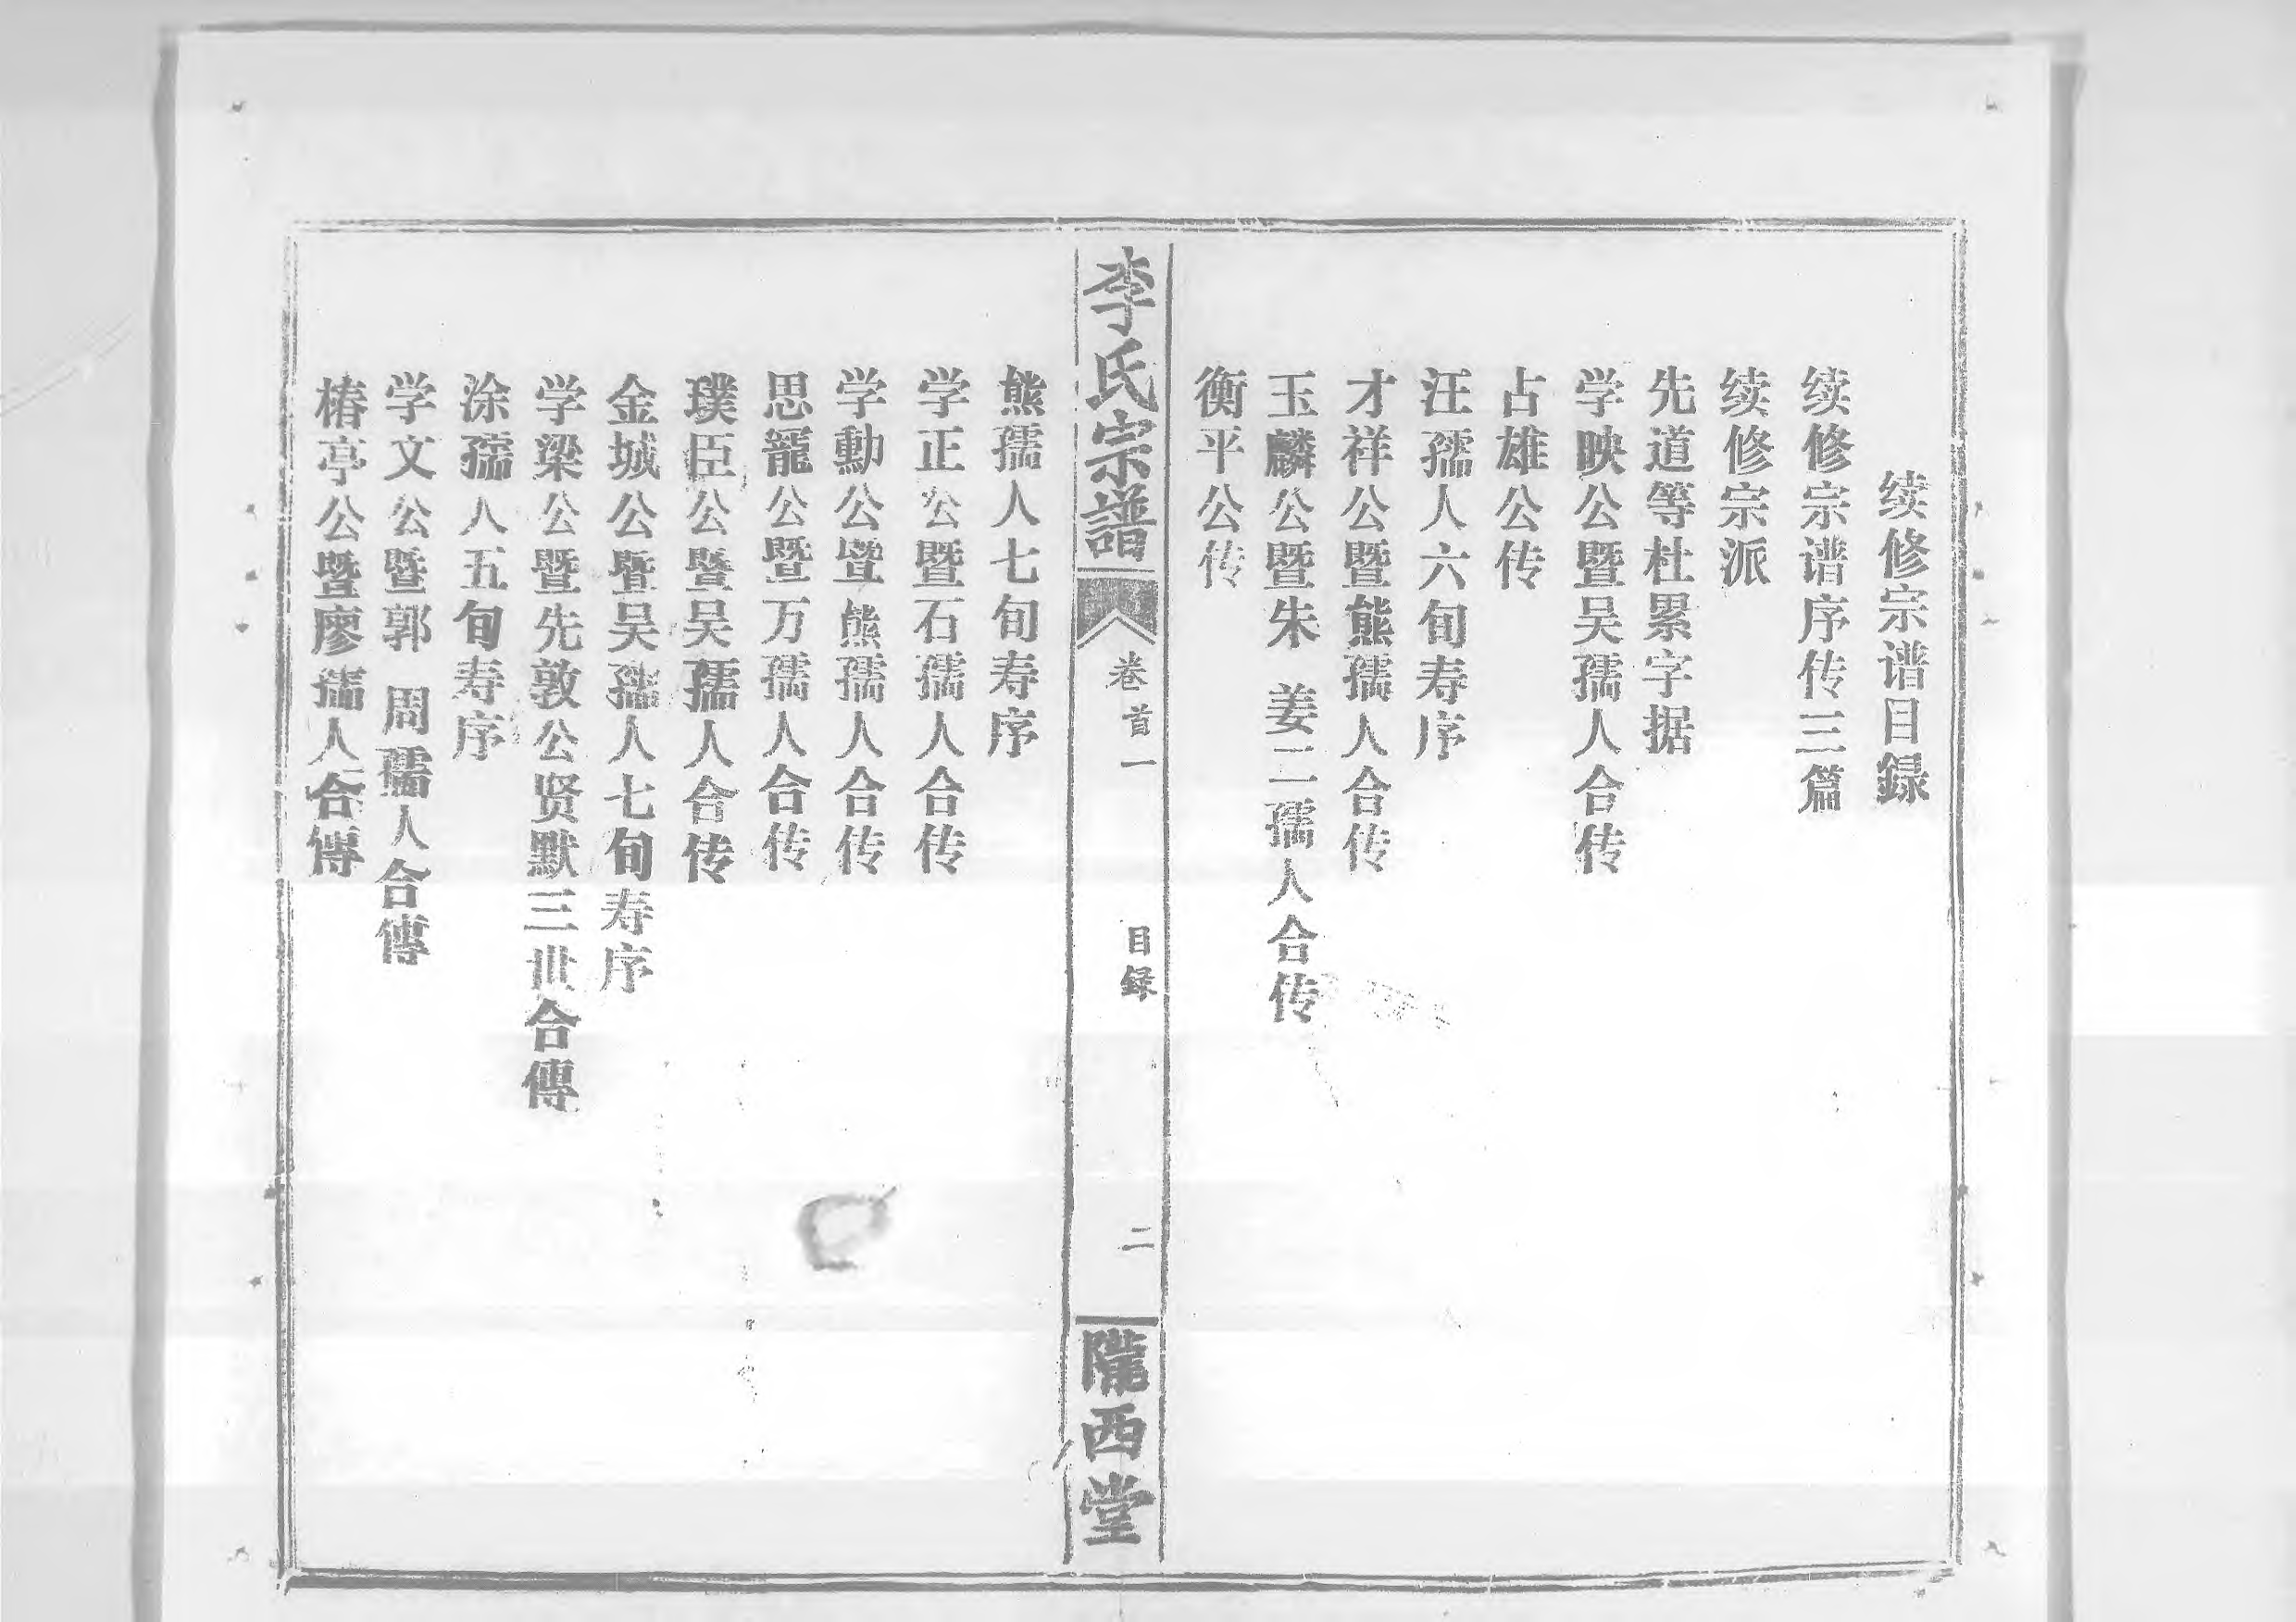 续修宗谱目録
续修宗谱序传三篇
续修宗派
先道等杜累字据
学映公暨吴孺人合传
占雄公传
汪孺人六旬寿序
才祥公暨熊孺人合传
玉麟公暨朱 姜二孺人合传
衡平公传
李氏宗譜
卷首一
目録
二
隴西堂
熊孺人七旬寿序
学正公暨石孺人合传
学勳公暨熊孺人合传
思寵公暨万孺人合传
璞臣公暨吴孺人合传
金城公暨吴孺人七旬寿序
学梁公暨先敦公贤默三世合傳
涂孺人五旬寿序
学文公暨郭 周孺人合傳
椿亭公暨廖孺人合傳